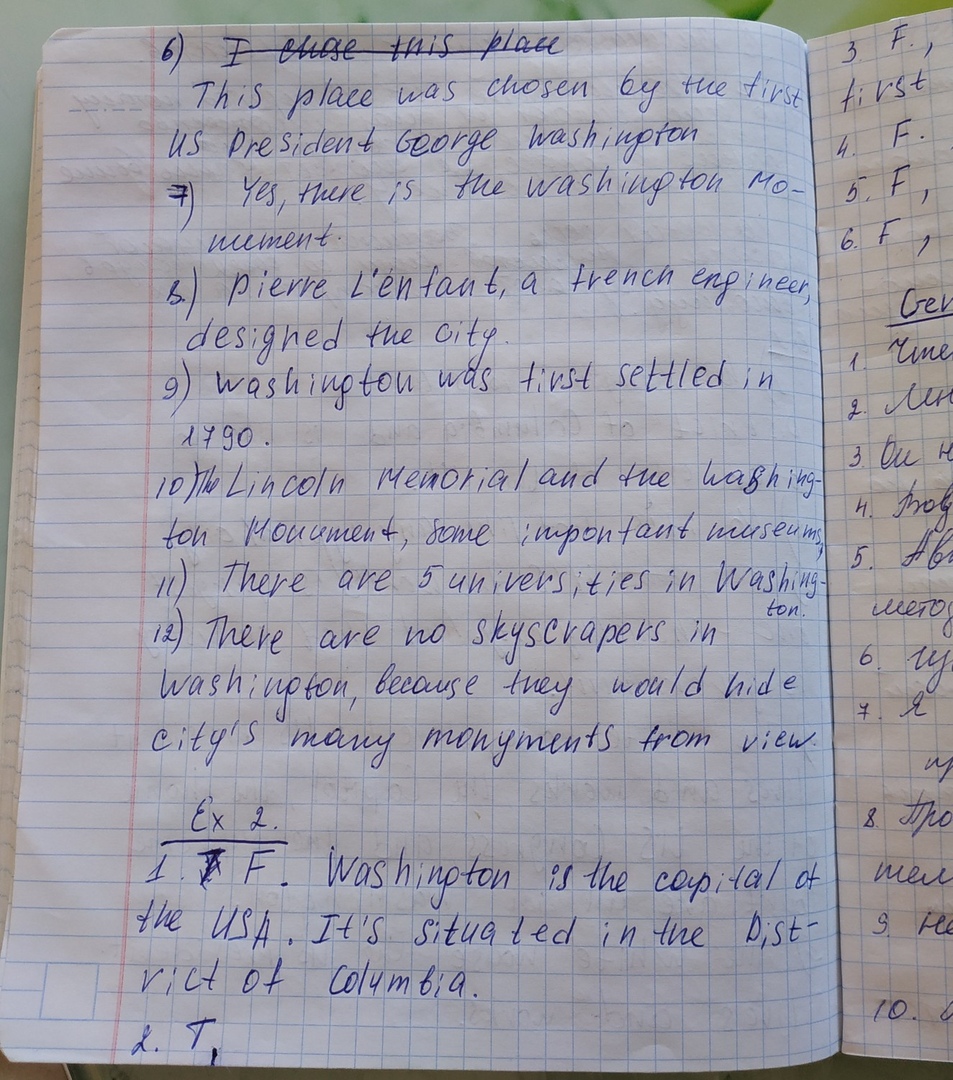 6) I chose this place
This place was chosen by the first
US President George Washington
7) Yes, there is the Washington Mo-
nument.
8.) Pierre L'enfant, a french engineer,
designed the city.
9) Washington was first settled in
1790.
10) The Lincoln Memorial and the Washing-
ton Monument, some important museums,
11) There are 5 universities in Washing-
ton.
12) There are no skyscrapers in
Washington, because they would hide
city's many monyments from view.
Ex 2.
1. F. Washington is the capital of
the USA. It's situated in the Dist-
rict of Columbia.
2. T,
3 F.,
first
4. F.
5. F,
6. F,
Ger
1. Чте
2.
3 Он н
4.
5. Ав
метод
6.
7. Я
8. Про
тел
9. Не
10.